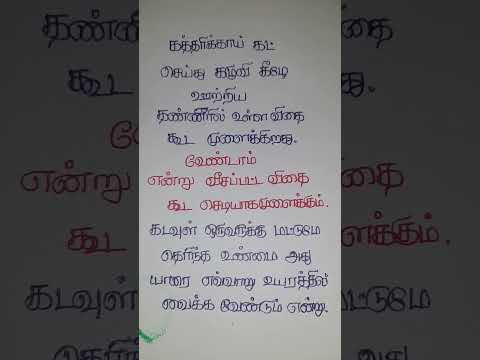 கத்தரிக்காய் கட்
செய்து கழுவி கீழே
ஊற்றிய
தண்ணீரில் உள்ள விதை
கூட முளைக்கிறது.
வேண்டாம்
என்று வீசப்பட்ட விதை
கூட செடியாகமுளைக்கும்.
கடவுள் ஒருவருக்கு மட்டுமே
தெரிந்த உண்மை அது
யாரை எவ்வாறு உயரத்தில்
வைக்க வேண்டும் என்று.